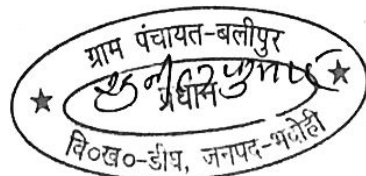 ग्राम पंचायत-बलीपुर
प्रधान
वि०ख०-डीघ, जनपद-भदोही